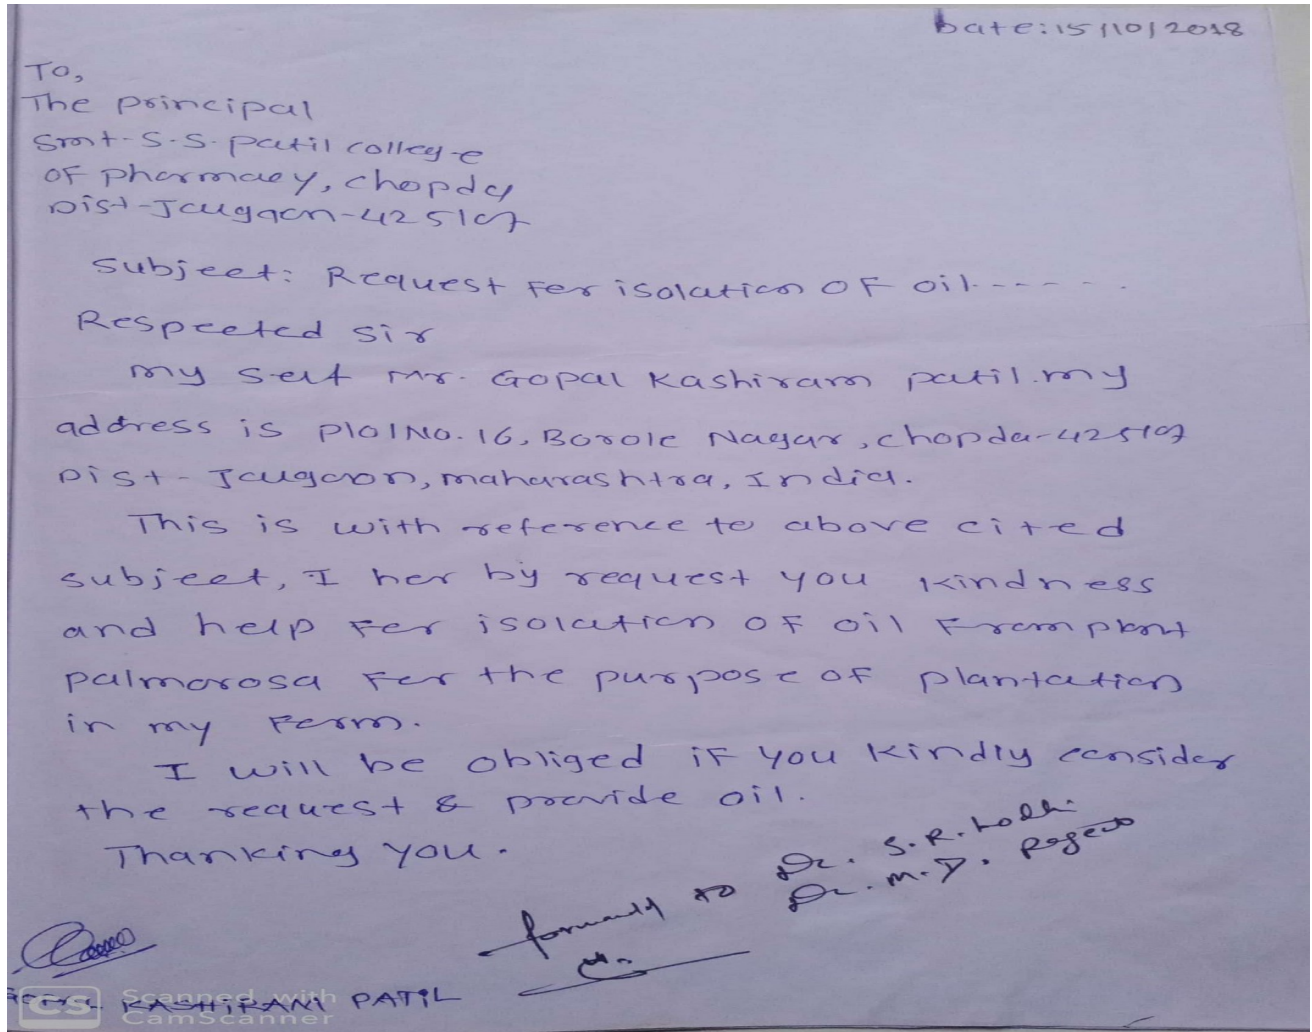 Date: 15/10/2018
To,
The principal
Smt. S.S. patil college
OF pharmacy, chopda
Dist-Jalgaon-425107
Subject: Request For isolation OF oil------
Respected sir
my self Mr. Gopal Kashiram patil. my
address is plot No. 16, Borole Nagar, chopda-425107
Dist- Jalgaon, maharashtra, India.
This is with reference to above cited
subject, I her by request you kindness
and help For isolation OF oil From plant
palmarosa For the purpose OF plantation
in my Farm.
I will be obliged iF you kindly consider
the request & provide oil.
Thanking you.
Dr. S.R. Lodhi
forward to Dr. M.D.
KASHIRAM PATIL
CS Scanned with
CamScanner